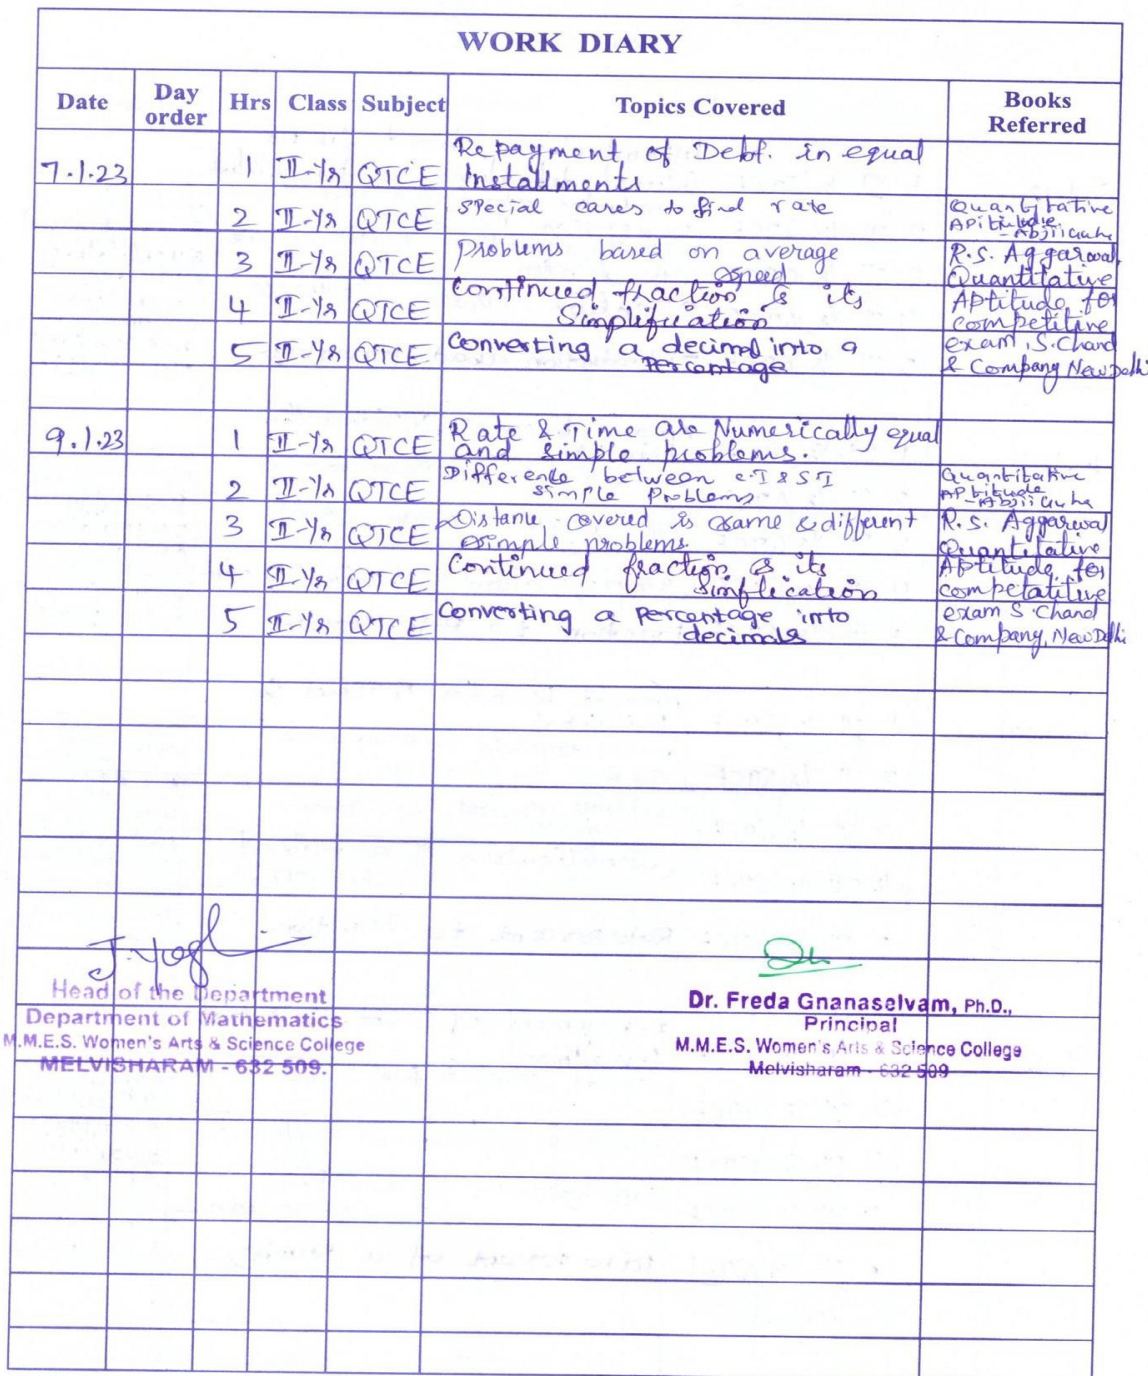 WORK DIARY
Date Day order Hrs Class Subject Topics Covered Books Referred
7.1.23 1 II-Yr QTCE Repayment of Debt. in equal
Installments
2 II-Yr QTCE Special cases to find rate Quantitative
Aptitude
- Abjii Guha
3 II-Yr QTCE Problems based on average
speed
R.S. Aggarwal,
Quantitative
4 II-Yr QTCE Continued fraction & its
Simplification
Aptitude for
competitive
5 II-Yr QTCE Converting a decimal into a
Percentage
exam, S. Chand
& Company New Delhi
9.1.23 1 II-Yr QTCE Rate & Time are Numerically equal
and simple problems.
2 II-Yr QTCE Difference between C.I & SI
Simple Problems
Quantitative
Aptitude
- Abjii Guha
3 II-Yr QTCE Distance covered is same & different
simple problems.
R.S. Aggarwal
Quantitative
4 II-Yr QTCE Continued fraction & its
Simplication
Aptitude for
competatitive
5 II-Yr QTCE Converting a Percentage into
decimals
exam S. Chand
& Company, New Delhi
Head of the Department
Department of Mathematics
M.M.E.S. Women's Arts & Science College
MELVISHARAM - 632 509.
Dr. Freda Gnanaselvam, Ph.D.,
Principal
M.M.E.S. Women's Arts & Science College
Melvisharam - 632 509